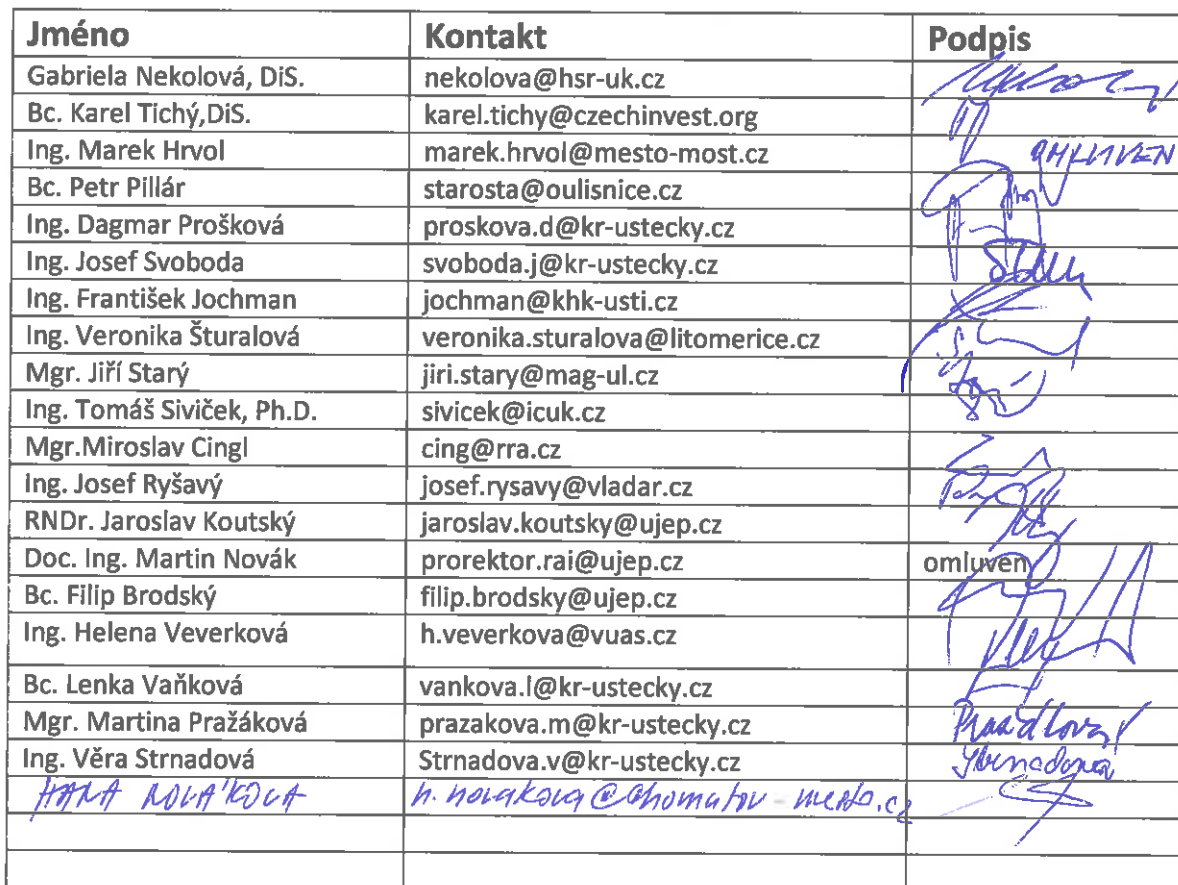 Jméno Kontakt Podpis
Gabriela Nekolová, DiS. nekolova@hsr-uk.cz
Bc. Karel Tichý,DiS. karel.tichy@czechinvest.org
Ing. Marek Hrvol marek.hrvol@mesto-most.cz OMLUVEN
Bc. Petr Pillár starosta@oulisnice.cz
Ing. Dagmar Prošková proskova.d@kr-ustecky.cz
Ing. Josef Svoboda svoboda.j@kr-ustecky.cz
Ing. František Jochman jochman@khk-usti.cz
Ing. Veronika Šturalová veronika.sturalova@litomerice.cz
Mgr. Jiří Starý jiri.stary@mag-ul.cz
Ing. Tomáš Siviček, Ph.D. sivicek@icuk.cz
Mgr.Miroslav Cingl cing@rra.cz
Ing. Josef Ryšavý josef.rysavy@vladar.cz
RNDr. Jaroslav Koutský jaroslav.koutsky@ujep.cz
Doc. Ing. Martin Novák prorektor.rai@ujep.cz omluven
Bc. Filip Brodský filip.brodsky@ujep.cz
Ing. Helena Veverková h.veverkova@vuas.cz
Bc. Lenka Vaňková vankova.l@kr-ustecky.cz
Mgr. Martina Pražáková prazakova.m@kr-ustecky.cz
Ing. Věra Strnadová Strnadova.v@kr-ustecky.cz Strnadova
HANA NOVÁKOVA h.novakova@chomutov-mesto.cz